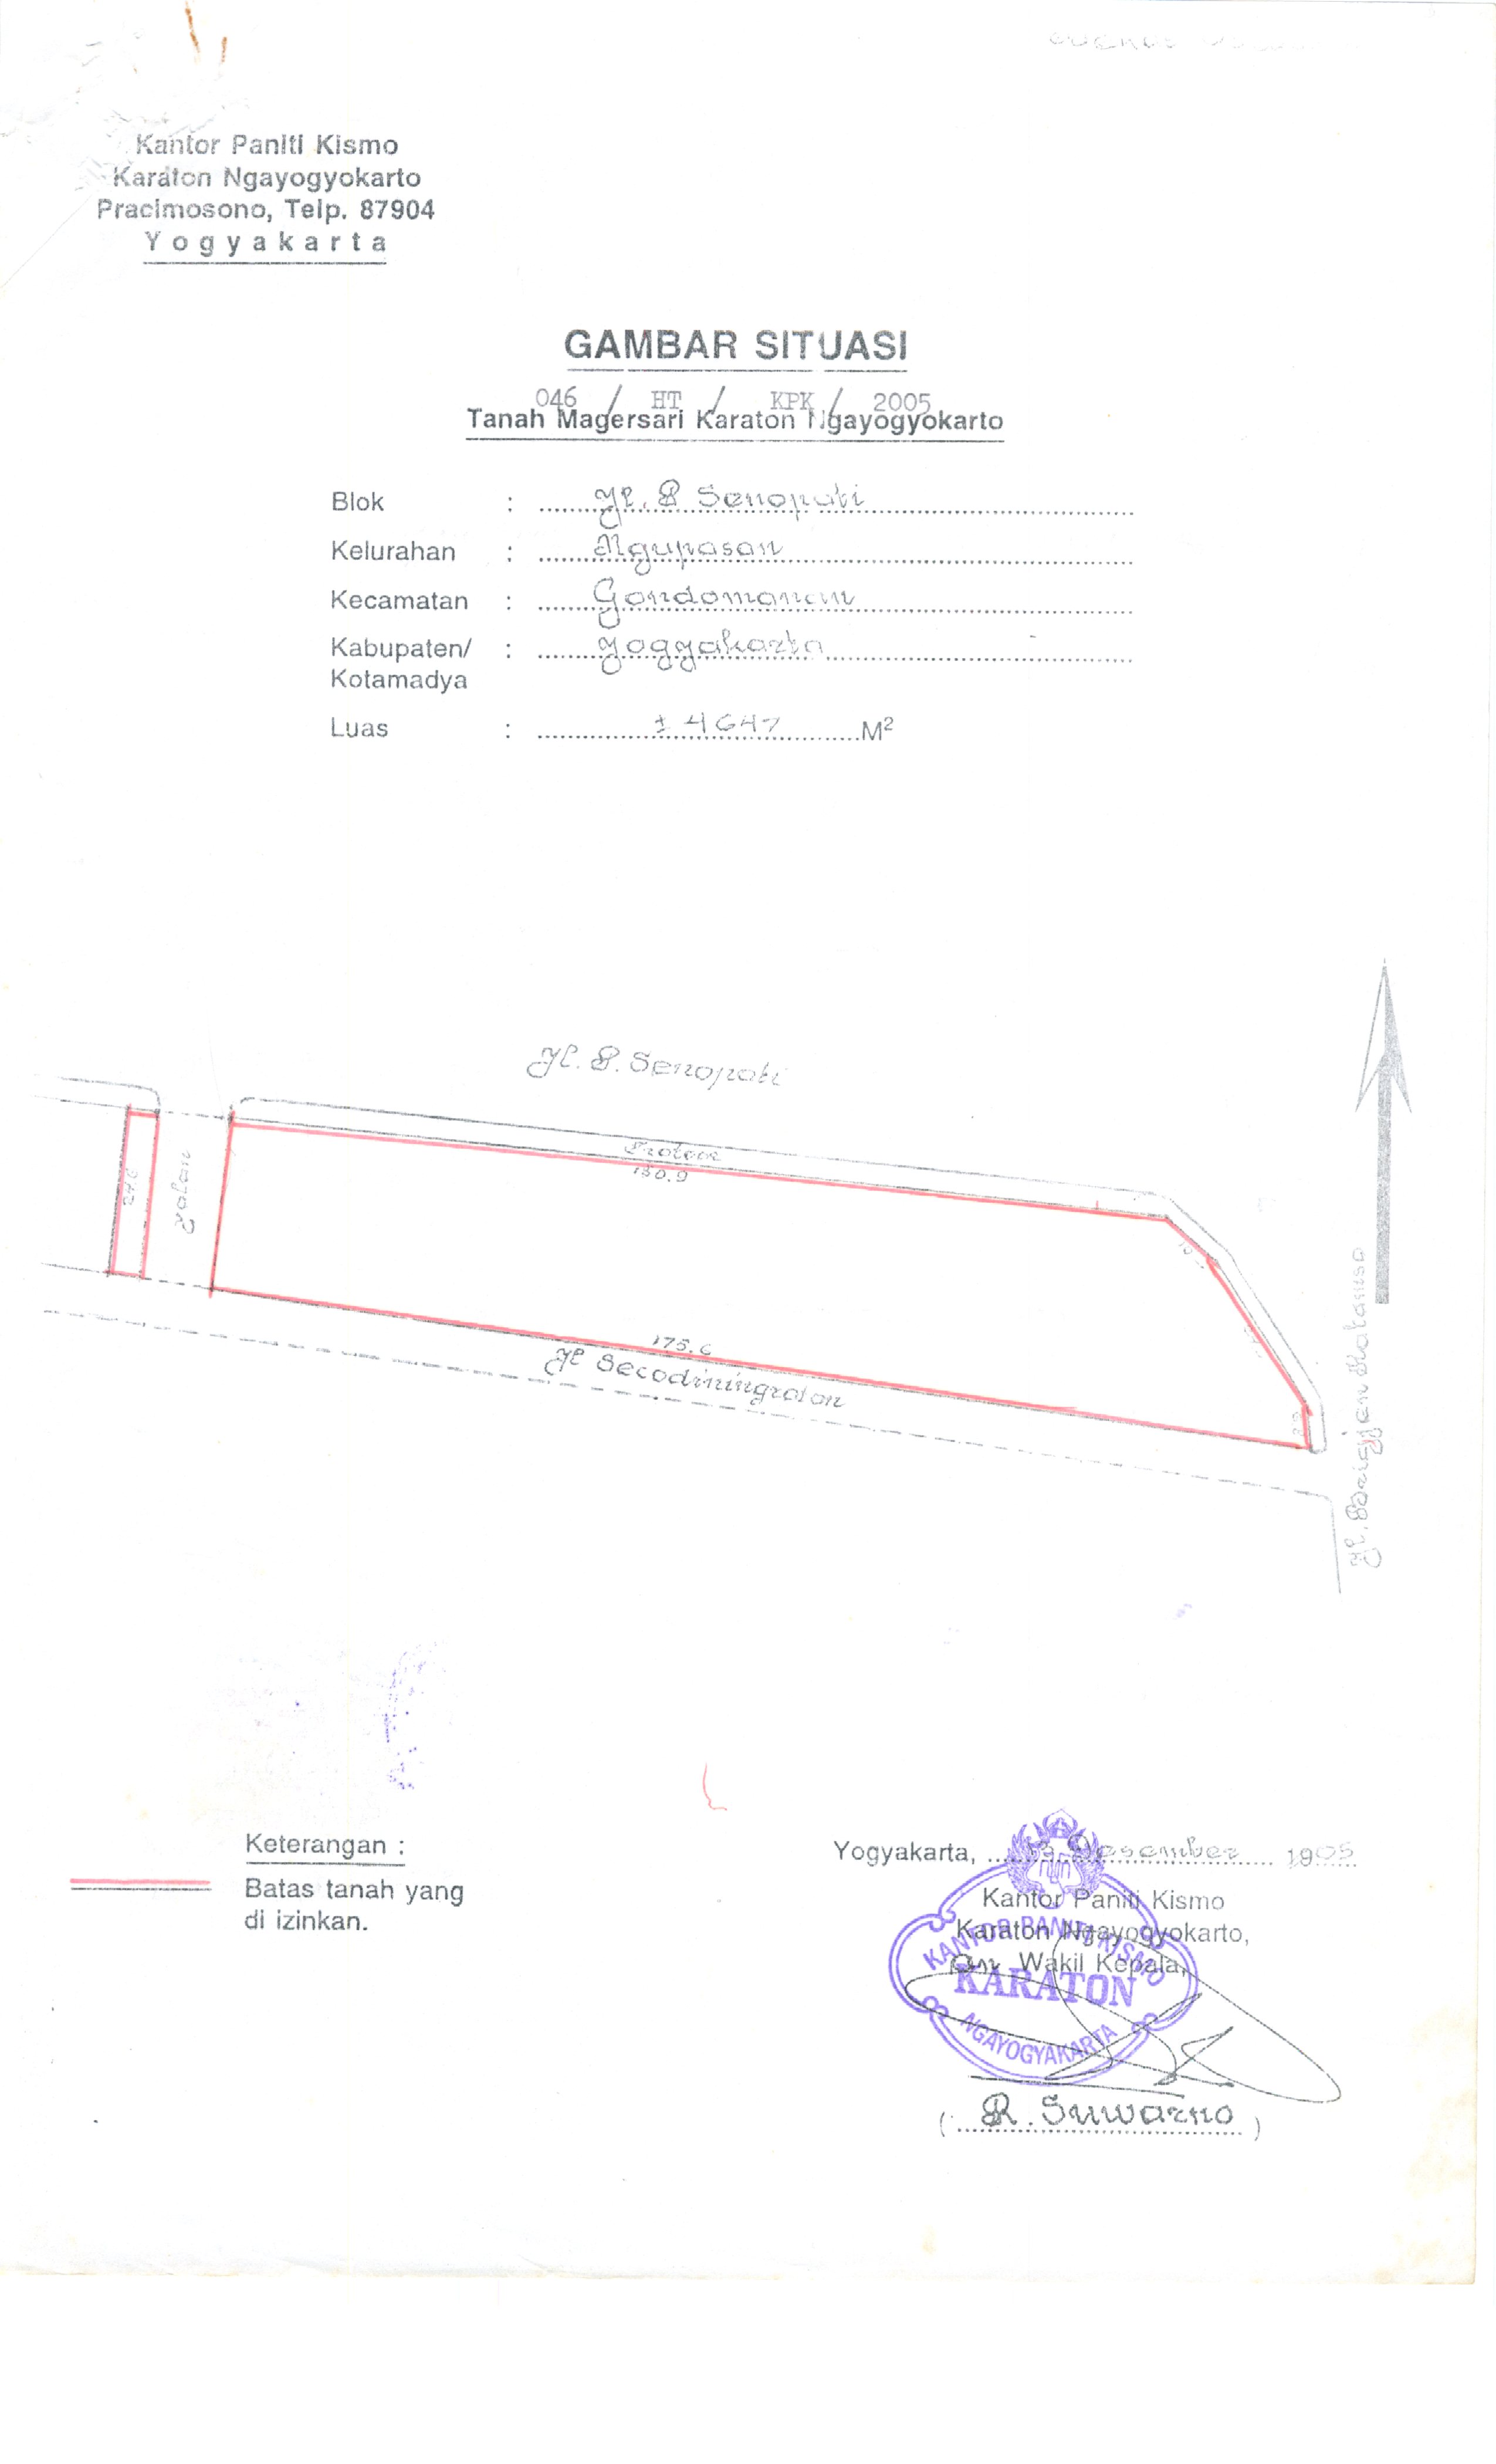 Kantor Paniti Kismo
Karaton Ngayogyokarto
Pracimosono, Telp. 87904
Yogyakarta
GAMBAR SITUASI
046 / HT / KPK / 2005
Tanah Magersari Karaton Ngayogyokarto
Blok : Jl. P Senopati
Kelurahan : Ngupasan
Kecamatan : Gondomanan
Kabupaten/ : Yogyakarta
Kotamadya
Luas : ± 4647 M²
Jl. P. Senopati
Trotoar
150.9
Jalan
175.6
Jl Secodiningratan
Jl. Brigjen Katamso
Keterangan :
Batas tanah yang
di izinkan.
Yogyakarta, Desember 1905
Kantor Paniti Kismo
Karaton Ngayogyokarto,
An Wakil Kepala,
KANTOR PANITI KISMO
KARATON
NGAYOGYAKARTA
( R. Suwarno )